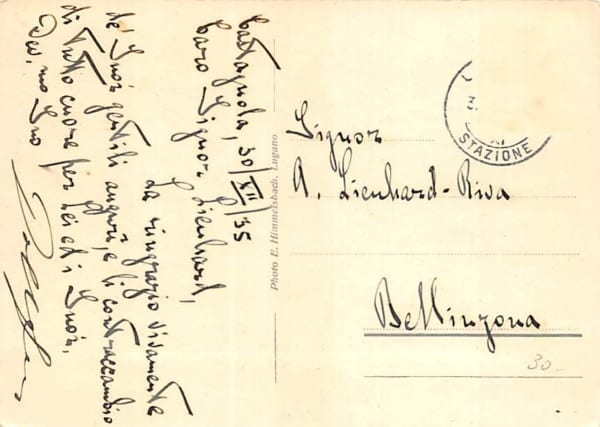 Castagnola, 30/XII/35
Caro Signor Lienhard,
La ringrazio vivamente
de' Suoi gentili auguri, e li contraccambio
di tutto cuore per Lei ed i Suoi.
Dev.mo Suo
Photo E. Himmelsbach, Lugano
STAZIONE
Signor
A. Lienhard-Riva
Bellinzona
30.-